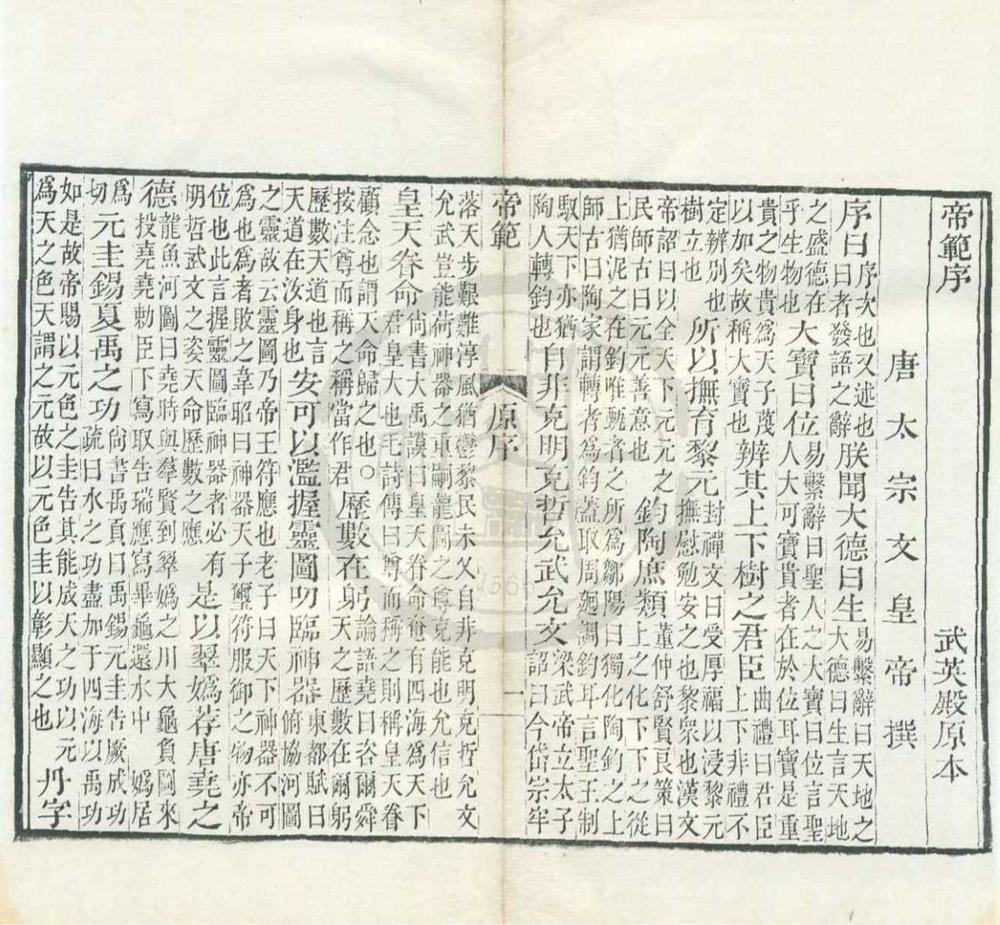 帝範序　武英殿原本
唐太宗文皇帝撰
序曰序次也又述也曰者發語之辭朕聞大德曰生易繫辭曰天地之大德曰生言天地
之盛德在乎生物也大寶曰位易繫辭曰聖人之大寶曰位言聖人大可寶貴者在於位耳寶是重
貴之物貴爲天子蔑以加矣故稱大寶也辨其上下樹之君臣曲禮曰君臣上下非禮不
定辨别也樹立也所以撫育黎元封禪文曰受厚福以浸黎元撫慰勉安之也黎衆也漢文
帝詔曰以全天下元元之民師古曰元元善意也鈞陶庶類董仲舒賢良策曰上之化下下之從
上猶泥之在鈞唯甄者之所爲鄒陽曰獨化陶鈞之上師古曰陶家謂轉者爲鈞蓋取周迴調鈞耳言聖王制
馭天下亦猶陶人轉鈞也自非克明克哲允武允文梁武帝立太子詔曰今岱宗牢
帝範　原序　一
落天步艱難淳風猶鬱黎民未乂自非克明克哲允文允武豈能荷神器之重嗣龍圖之尊克能也允信也
皇天眷命尚書大禹謨曰皇天眷命奄有四海爲天下君皇大也毛詩傳曰尊而稱之則稱皇天眷
顧念也謂天命歸之也○按注尊而稱之稱當作君歷數在躬論語堯曰咨爾舜天之歷數在爾躬
歷數天道也言天道在汝身也安可以濫握靈圖叨臨神器東都賦曰俯協河圖
之靈故云靈圖乃帝王符應也老子曰天下神器不可爲也爲者敗之韋昭曰神器天子璽符服御之物亦帝
位也此言握靈圖臨神器者必有明哲武文之姿天命歷數之應是以翠嬀荐唐堯之
德龍魚河圖曰堯時與羣賢到翠嬀之川大龜負圖來投堯堯勅臣下寫取告瑞應寫畢龜還水中　嬀居
爲切元圭錫夏禹之功尚書禹貢曰禹錫元圭告厥成功疏曰水之功盡加于四海以禹功
如是故帝賜以元色之圭告其能成天之功以元爲天之色天謂之元故以元色圭以彰顯之也丹字